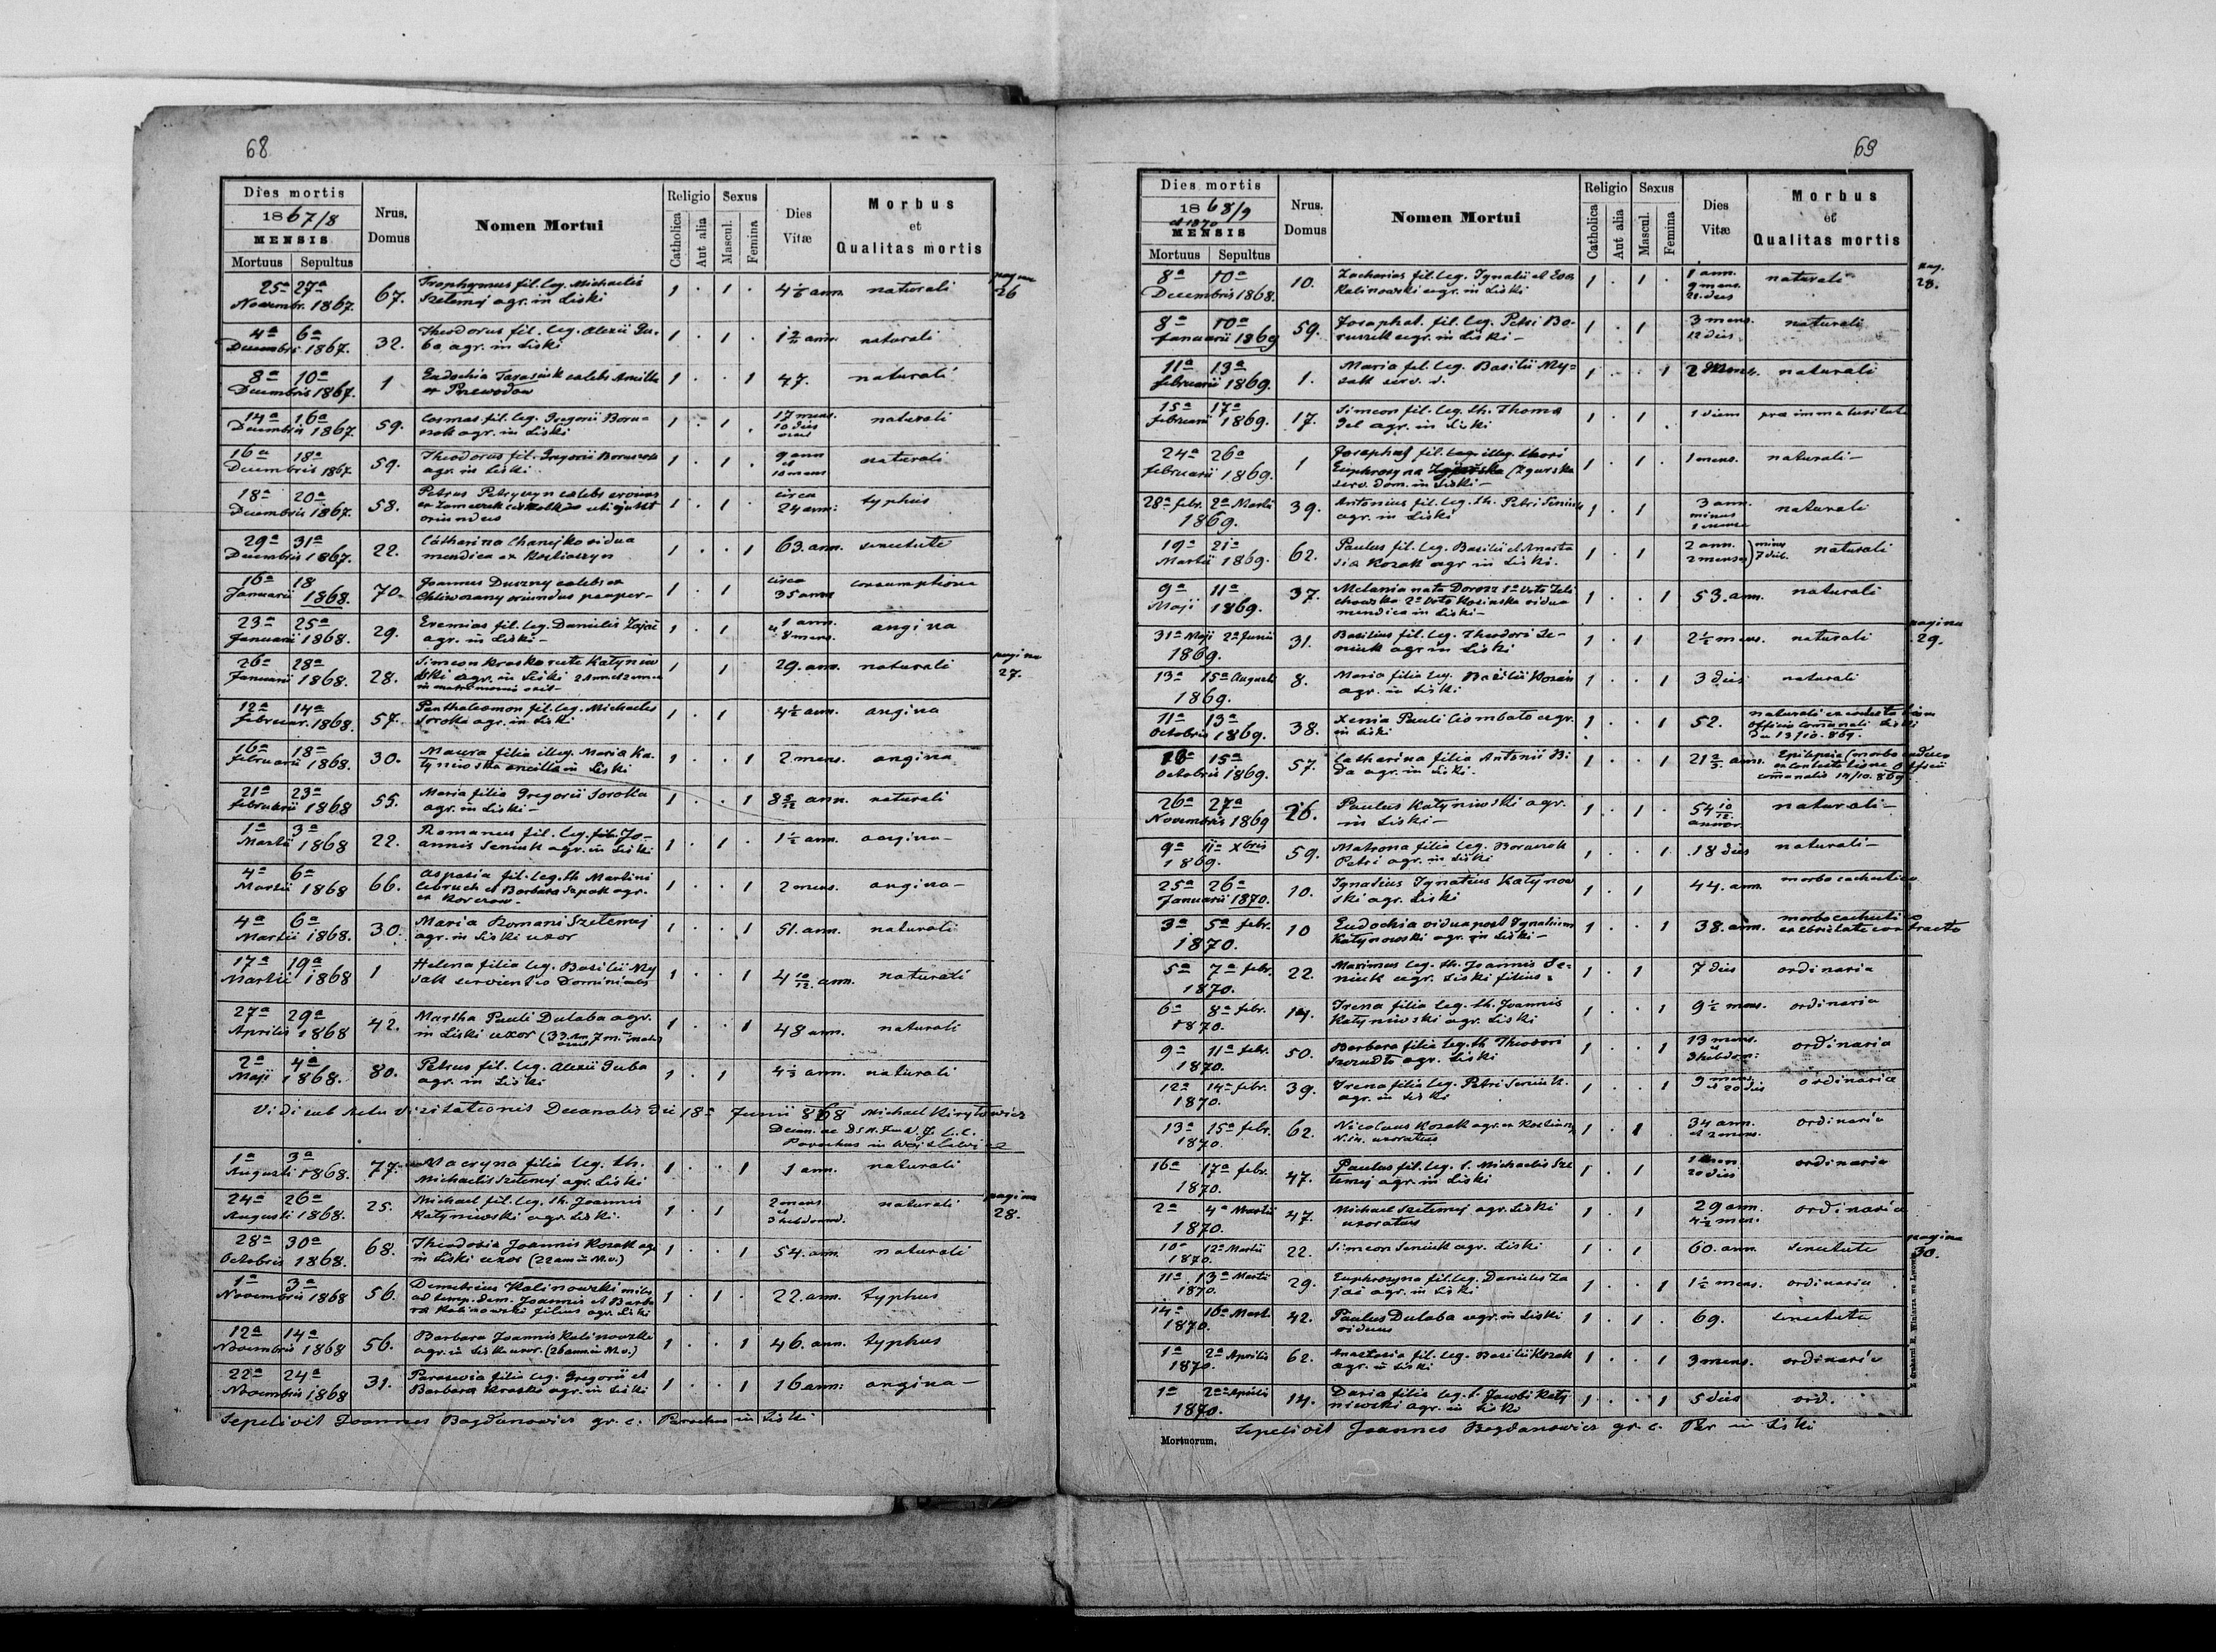 68
Dies mortis
1867/8
MENSIS
Mortuus Sepultus
Nrus. Domus
Nomen Mortui
Religio
Catholica
Aut alia
Sexus
Mascul.
Femina
Dies Vitæ
Morbus et Qualitas mortis
25a 27a Trophymus fil. leg. Michaelis pagina
Novembr. 1867. 67. Szetemej agr. in Liski 1 . 1 . 4 ann. naturali 26
4a 6a Theodorus fil. leg. Alexii Gu-
Decembris 1867. 32. ba agr. in Liski 1 . 1 . ann. naturali
8a 10a Eudochia Tarasiuk caelebs Ancilla
Decembris 1867. 1 ex Przewodow 1 . . 1 47. naturali
14a 16a Cosmas fil. leg. Gregorii Boru- 17 mens.
Decembris 1867. 59. szok agr. in Liski 1 . 1 . 10 dies naturali
16a 18a Theodorus fil. Gregorii 9 ann
Decembris 1867 59. agr. in Liski 1 . 1 . et 10 mens naturali
18a 20a Petrus caelebs circa
Decembris 1867. 58. ex uti ajunt 1 . 1 . 24 ann: typhus
oriundus
29a 31a Catharina Chanejko vidua
Decembris 1867. 22. mendica ex 1 . . 1 63. ann. senectute
16a 18 Joannes Duszny caelebs ex circa
Januarii 1868. 70. oriundus pauper- 1 . 1 35 annor consumptione
23a 25a Eremias fil. leg. Danielis Zajac 1 ann.
Januarii 1868. 29. agr. in Liski - 1 . 1 8 mens. angina
26a 28a Simeon Krasko recte Katyniow pagina
Januarii 1868. 28. ski agr. in Liski 1 1 29. ann. naturali 27.
in matrimonio
12a 14a Panthaleamon fil. leg. Michaelis
februar. 1868. 57. Soroka agr. in Liski 1 . 1 4½ ann. angina
16a 18a Maura filia illeg. Maria Ka-
februarii 1868. 30. tyniowska ancilla in Liski 1 . . 1 2 mens. angina
21a 23a Maria filia Gregorii Soroka
februarii 1868 55. agr. in Liski - 1 . . 1 8 ann. naturali
1a 3a Romanus fil. leg. Jo-
Martii 1868 22. annis Seniuk agr. in Liski 1 . 1 . 1½ ann. angina -
4a 6a Aspasia fil. leg. th. Martini
Martii 1868 66. Cebruch et Barbara agr. 1 . . 1 2 mens. angina -
ex Korczow -
4a 6a Maria Romani Szetemej
Martii 1868. 30. agr. in Liski uxor 1 . . 1 51. ann. naturali
17a 19a Helena filia leg. Basilii My-
Martii 1868 1 sak servientis Dominicalis 1 . . 1 4 10/12 ann. naturali
27a 29a Martha Pauli Dulaba agr.
Aprilis 1868 42. in Liski uxor 1 . . 1 48 ann. naturali
2a 4a Petrus fil. leg. Alexii Guba
Maji 1868. 80. agr. in Liski 1 . 1 ann. naturali
Vidi sub Actu Visitationis Decanalis die 18a Junii 868 Michael Kiryłowicz
Decan.
Parochus in
1a 3a Macryna filia leg. th.
Augusti 1868. 77. Michaelis Szetemej agr. Liski 1 . . 1 1 ann. naturali
24a 26a Michael fil. leg. th. Joannis 2 mens pagina
Augusti 1868. 25. Katyniowski agr. Liski. 1 . 1 3 hebdomad. naturali 28.
28a 30a Theodosia Joannis Kozak agr
Octobris 1868. 68. in Liski uxor (22 ann in M.v.) 1 . . 1 54. ann. naturali
1a 3a Demetrius Kalinowski miles
Novembris 1868 56. Joannis et Barba 1 . 1 . 22. ann. typhus
ra Kalinowski filius agr. Liski
12a 14a Barbara Joannis Kalinowski
Novembris 1868 56. agr. in Liski uxor. (26 ann in M.v.) 1 . . 1 46. ann. typhus
22a 24a Parasevia filia leg. Gregorii et
Novembris 1868 31. Barbara Krasko agr. in Liski 1 . . 1 16 ann: angina -
Sepelivit Joannes Bogdanowicz gr. c. Parochus in Liski
69
Dies mortis
1868/9
et 1870
MENSIS
Mortuus Sepultus
Nrus. Domus
Nomen Mortui
Religio
Catholica
Aut alia
Sexus
Mascul.
Femina
Dies Vitæ
Morbus et Qualitas mortis
8a 10a Zacharias fil. leg. Ignatii et Eva 1 ann. pag.
Decembris 1868. 10. Kalinowski agr. in Liski 1 . 1 . 9 mens. naturali 28.
dies
8a 10a Josaphat. fil. leg. Petri Bo- 3 mens.
Januarii 1869 59. ruszek agr. in Liski - 1 . 1 12 dies naturali
11a 13a Maria fil. leg. Basilii My=
februarii 1869. 1. sak serv. d. 1 . . 1 2 naturali
15a 17a Simeon fil. leg. th. Thoma
februarii 1869. 17. agr. in Liski 1 . 1 . 1 diem prae immaturitate
24a 26a Josaphat fil. illeg. thori
februarii 1869. 1 Euphrosyna (Zgurska 1 . 1 . 1 mens. naturali -
serv. dom. in Liski -
28a febr. 2a Martii Antonius fil. leg. th. Petri Seniuk 3 ann.
1869. 39. agr. in Liski 1 . 1 minus naturali
1 mense
19a 21a Paulus fil. leg. Basilii et Anasta 2 ann. minus
Martii 1869. 62. sia Kozak agr in Liski. 1 . 1 2 menses 7 dieb. naturali
9a 11a Melania nata Dorosz 1o voto Zeli
Maji 1869. 37. chowska 2o voto Kosinska vidua 1 . . 1 53. ann. naturali
mendica in Liski -
31a Maji 2a Junii Basilius fil. leg. Theodori Se- pagina
1869. 31. niuk agr in Liski 1 . 1 2½ mens. naturali 29.
13a 15a Augusti Maria filia leg. Basilii Kozak
1869. 8. agr. in Liski 1 . . 1 3 dies naturali
11a 13a Xenia Pauli Ciombało agr. naturali ex contestatione
Octobris 1869. 38. in Liski 1 . . 1 52. Officii Communali Liski
13/10. 869.
15a Catharina filia Antonii Bi Epilepsia (morbo caduco
Octobris 1869. 57. da agr. in Liski. 1 . . 1 21 ann. ex contestatione Officii
communalis 14/10. 869
26a 27a Paulus Katyniwski agr. 54 10/12
Novembris 1869 26. in Liski - 1 . 1 . annor. naturali -
9a 11a Xbris Matrona filia leg. Boruszok
1869. 59. Petri agr. in Liski 1 . . 1 18 dies naturali -
25a 26a Ignatius Ignatius Katynow
Januarii 1870. 10. ski agr. Liski 1 . 1 44. ann. morbo cachectico
3a 5a febr. Eudochia vidua post Ignatium morbo cachectico
1870. 10 Katynowski agr. in Liski - 1 . . 1 38. ann. ex ebrietate contracto
5a 7a febr. Maximus leg. th. Joannis Se=
1870. 22. niuk agr. Liski filius. 1 . 1 7 dies ordinaria
6a 8a febr. Irena filia leg. th. Joannis
1870. 14. Katyniwski agr. Liski 1 . . 1 9½ mens. ordinaria
9a 11a febr. Barbara filia leg. th Theodori 13 mens.
1870. 50. agr. Liski 1 . . 1 3 hebdom: ordinaria
12a 14a febr. Irena filia leg. Petri Seniuk. 9 mens.
1870. 39. agr. in Liski 1 . . 1 et 20 dies ordinaria
13a 15a febr. Nicolaus Kozak agr. ex 34 ann.
1870. 62. uxoratus 1 . 1 et 2 mens. ordinaria
16a 17a febr. Paulus fil. leg. t. Michaelis Sze
1870. 47. temej agr. in Liski 1 . 1 20 dies ordinaria
2a 4a Martii Michael Szetemej agr. Liski 29 ann.
1870. 47. uxoratus 1 . 1 4½ mens. ordinaria
10a 12a Martii pagina
1870. 22. Simeon Seniuk agr. Liski 1 . 1 60. ann. senectute 30.
11a 13a Martii Euphrosyna fil. leg. Danielis Za
1870. 29. jac agr. in Liski 1 . . 1 1½ mens. ordinaria
14a 16a Mart. Paulus Dulaba agr. in Liski
1870. 42. viduus 1 . 1 . 69. senectute
1a 2a Aprilis Anastasia fil. leg. Basilii Kozak
1870. 62. agr. in Liski 1 . . 1 3 mens. ordinaria
1a 2a Aprilis Daria filia leg. t. Jacobi Katy
1870. 14. niwski agr. in Liski 1 . . 1 5 dies ord.
Sepelivit Joannes Bogdanowicz gr. c. Par in Liski
Mortuorum.
Z drukarni E. Winiarza we Lwowie.